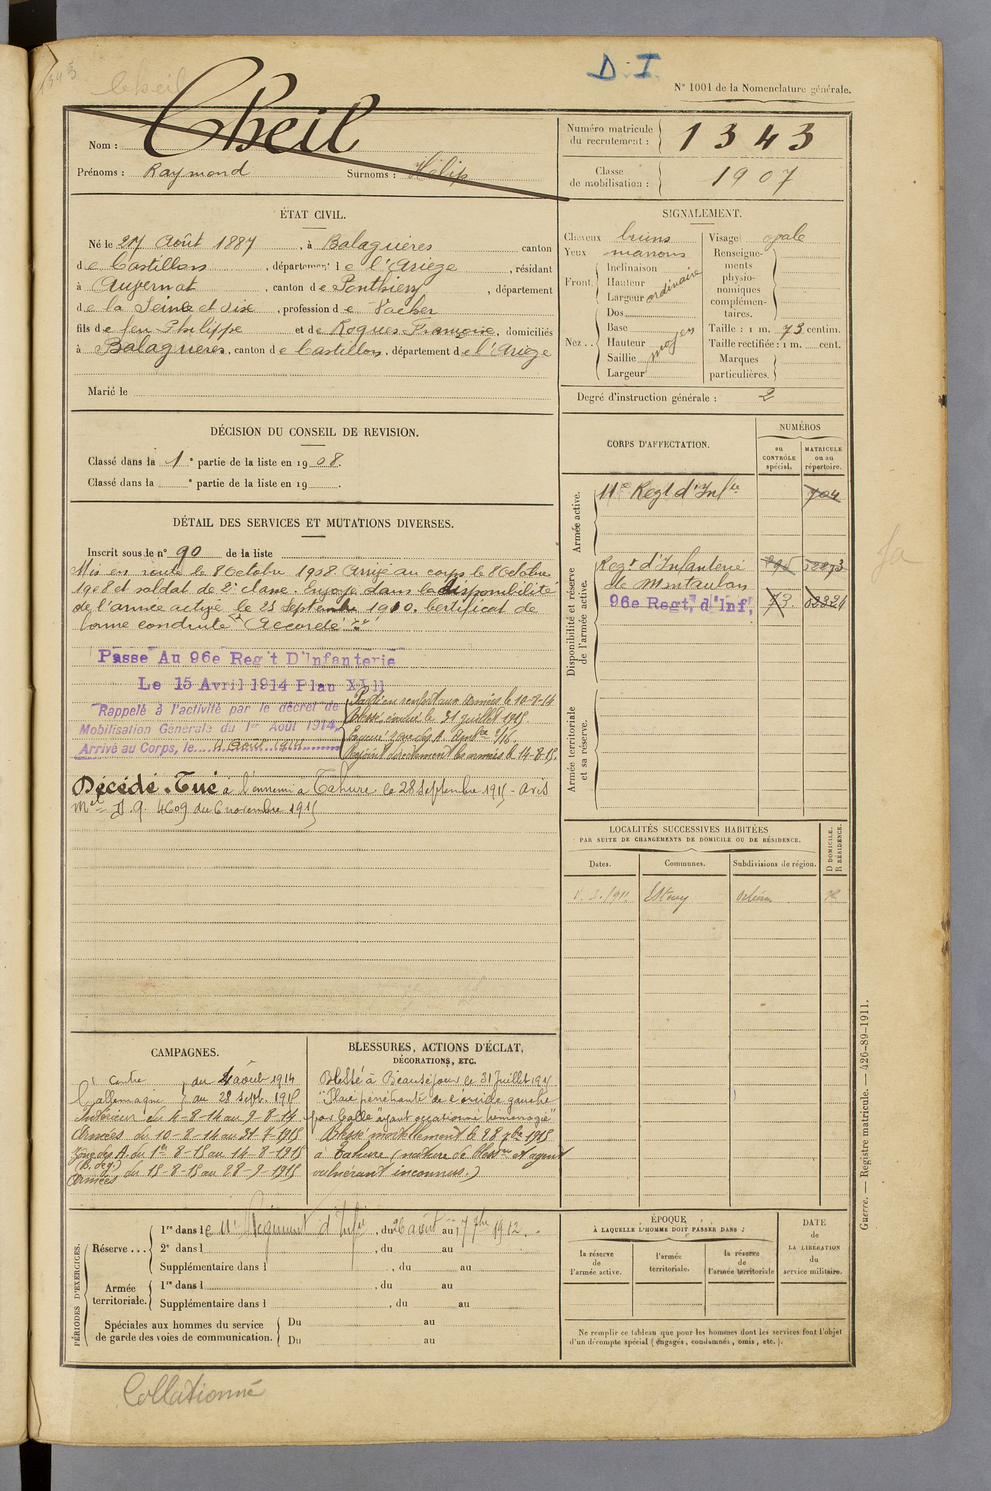 1343
Cheil
D.I
N° 1001 de la Nomenclature générale.
Nom : Cheil
Prénoms : Raymond Surnoms : Hélip
Numéro matricule du recrutement : 1343
Classe de mobilisation : 1907
ÉTAT CIVIL.
Né le 27 Août 1887, à Balaguères canton
de Castillon, département de l'Ariège, résidant
à Auvernat, canton de Ponthierry, département
de la Seine et Oise, profession de Vacher
fils de feu Philippe et de Rogues Françoise, domiciliés
à Balaguères, canton de Castillon, département de l'Ariège
Marié le
SIGNALEMENT.
Cheveux bruns
Yeux marrons
Front. Inclinaison
Hauteur
Largeur ordinaire
Nez.. Dos
Base
Hauteur moyen
Saillie
Largeur
Visage ovale
Renseignements physionomiques complémentaires.
Taille : 1 m. 73 centim.
Taille rectifiée : 1 m. cent.
Marques particulières.
Degré d'instruction générale : 2
DÉCISION DU CONSEIL DE REVISION.
Classé dans la 1e partie de la liste en 1908.
Classé dans la e partie de la liste en 19 .
DÉTAIL DES SERVICES ET MUTATIONS DIVERSES.
Inscrit sous le n° 90 de la liste
Mis en route le 8 Octobre 1908 Arrivé au corps le 8 Octobre
1908 et soldat de 2e classe. Envoyé dans la disponibilité
de l'armée active le 25 septembre 1910. Certificat de
bonne conduite "Accordé"
Passé Au 96e Reg't D'Infanterie
Le 15 Avril 1914 Plan XVII
Rappelé à l'activité par le décret de
Mobilisation Générale du 1er Août 1914,
Arrivé au Corps, le 4 Août 1914
Parti en renfort aux Armées le 10-8-14
Blessé, évacué le 31 juillet 1915
Rejoint directement les armées le 14-8-15.
Décédé. Tué à l'ennemi à Tahure le 28 Septembre 1915 - Avis
Mel D.g. 4609 du 6 novembre 1915
CORPS D'AFFECTATION.
NUMÉROS
au CONTRÔLE spécial.
MATRICULE ou au répertoire.
Armée active.
11e Regt d'Infie
Disponibilité et réserve de l'armée active.
Regt d'Infanterie
de Montauban
96e Regt, d'Inf,
Armée territoriale et sa réserve.
LOCALITÉS SUCCESSIVES HABITÉES
PAR SUITE DE CHANGEMENTS DE DOMICILE OU DE RÉSIDENCE.
Dates. Communes. Subdivisions de région. D DOMICILE. R RÉSIDENCE.
Orléans R
CAMPAGNES.
Contre l'allemagne du 4 août 1914
au 28 Sept. 1915
Intérieur du 4-8-14 au 9-8-14
Armées du 10-8-14 au 31-7-1915
Zône des A. du 1er-8-15 au 14-8-1915
Armées du 15-8-15 au 28-9-1915
BLESSURES, ACTIONS D'ÉCLAT,
DÉCORATIONS, ETC.
Blessé à Beauséjour le 31 Juillet 1915
"Plaie pénétrante de l'orbite gauche
par balle "ayant occasionné hémorragie"
Blessé mortellement le 28 7bre 1915
à Tahure (nature de bless.re et agent
vulnérant inconnus.)
PÉRIODES D'EXERCICES.
Réserve... 1re dans le 11e Régiment d'Infie, du 26 août au 17 7bre 1912.
2e dans l , du au
Supplémentaire dans l , du au
Armée territoriale. 1re dans l , du au
Supplémentaire dans l , du au
Spéciales aux hommes du service de garde des voies de communication. Du au
Du au
ÉPOQUE
À LAQUELLE L'HOMME DOIT PASSER DANS :
la réserve de l'armée active.
l'armée territoriale.
la réserve de l'armée territoriale
DATE DE LA LIBÉRATION du service militaire.
Ne remplir ce tableau que pour les hommes dont les services font l'objet
d'un décompte spécial (engagés, condamnés, omis, etc.).
Guerre. — Registre matricule. — 426-89-1911.
Collationné